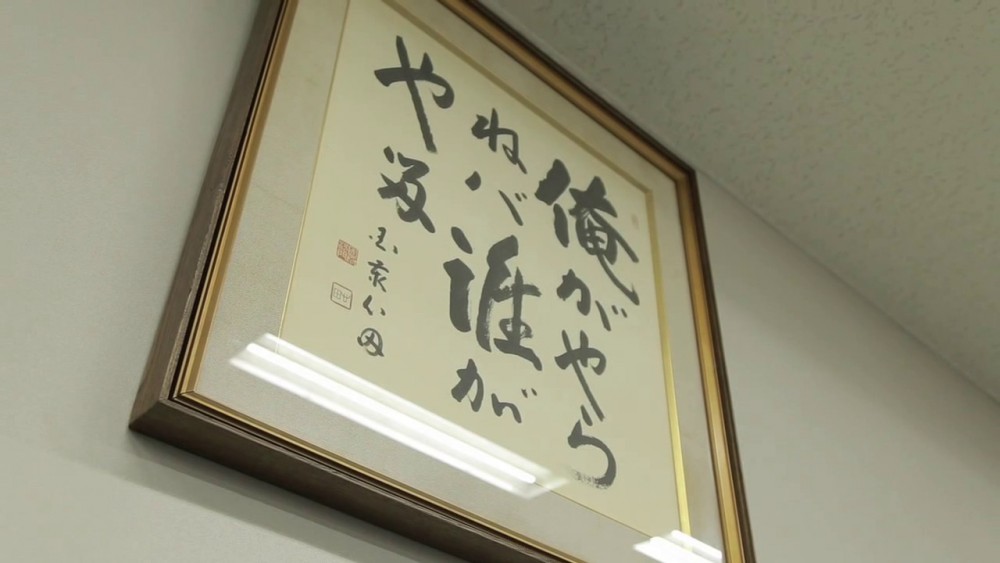 俺がやら
ねバ誰が
やる